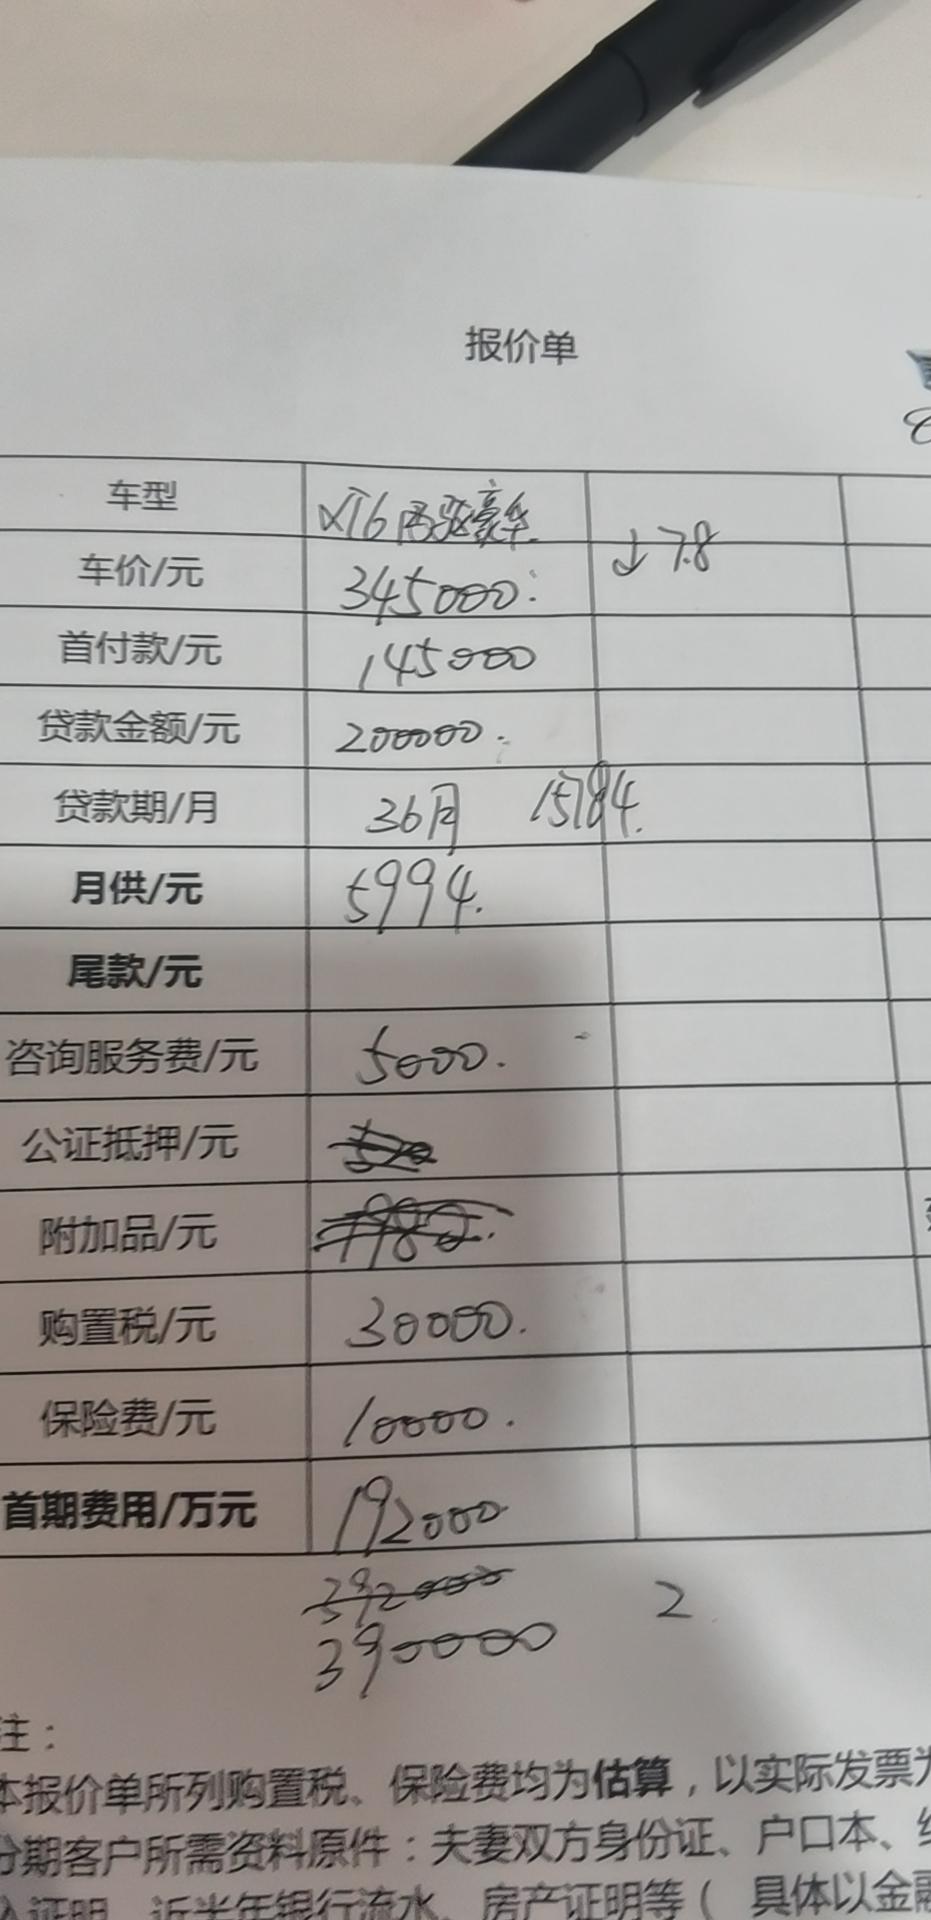 报价单
车型 XT6 两驱豪华.
车价/元 345000. ↓7.8
首付款/元 145000
贷款金额/元 200000.
贷款期/月 36月 15784.
月供/元 5994.
尾款/元
咨询服务费/元 5000.
公证抵押/元
附加品/元
购置税/元 30000.
保险费/元 10000.
首期费用/万元 192000
392000 2
390000
注：
本报价单所列购置税、保险费均为估算，以实际发票为
分期客户所需资料原件：夫妻双方身份证、户口本、
入证明、近半年银行流水、房产证明等（ 具体以金融